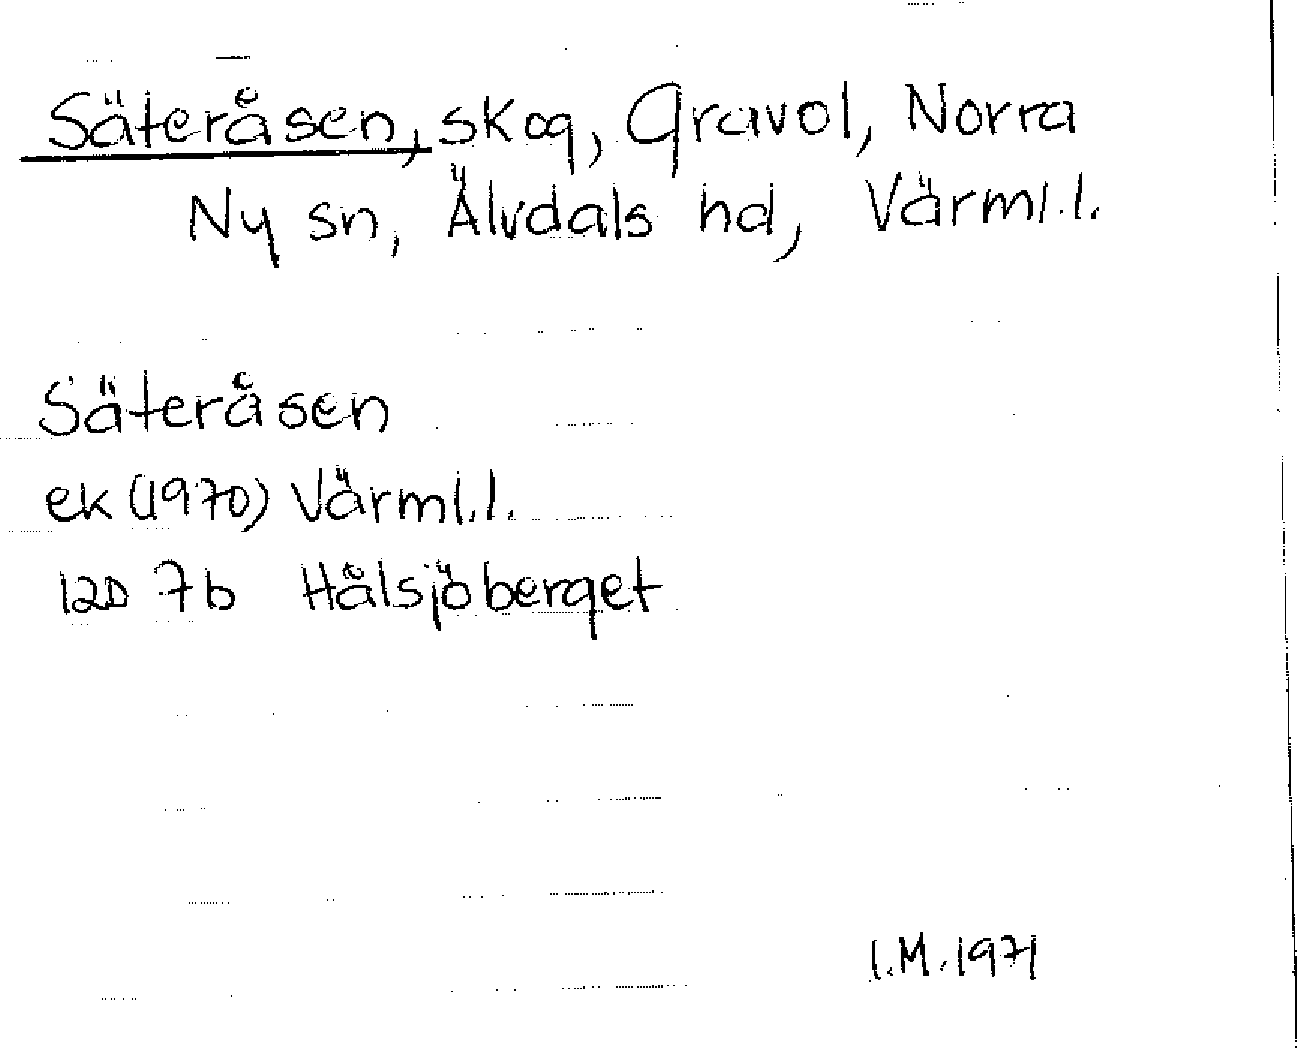 Säteråsen, skog, Gravol, Norra
Ny sn, Älvdals hd, Värml.l.
Säteråsen
ek (1970) Värml.l.
12D 7b Hålsjöberget
I.M. 1971